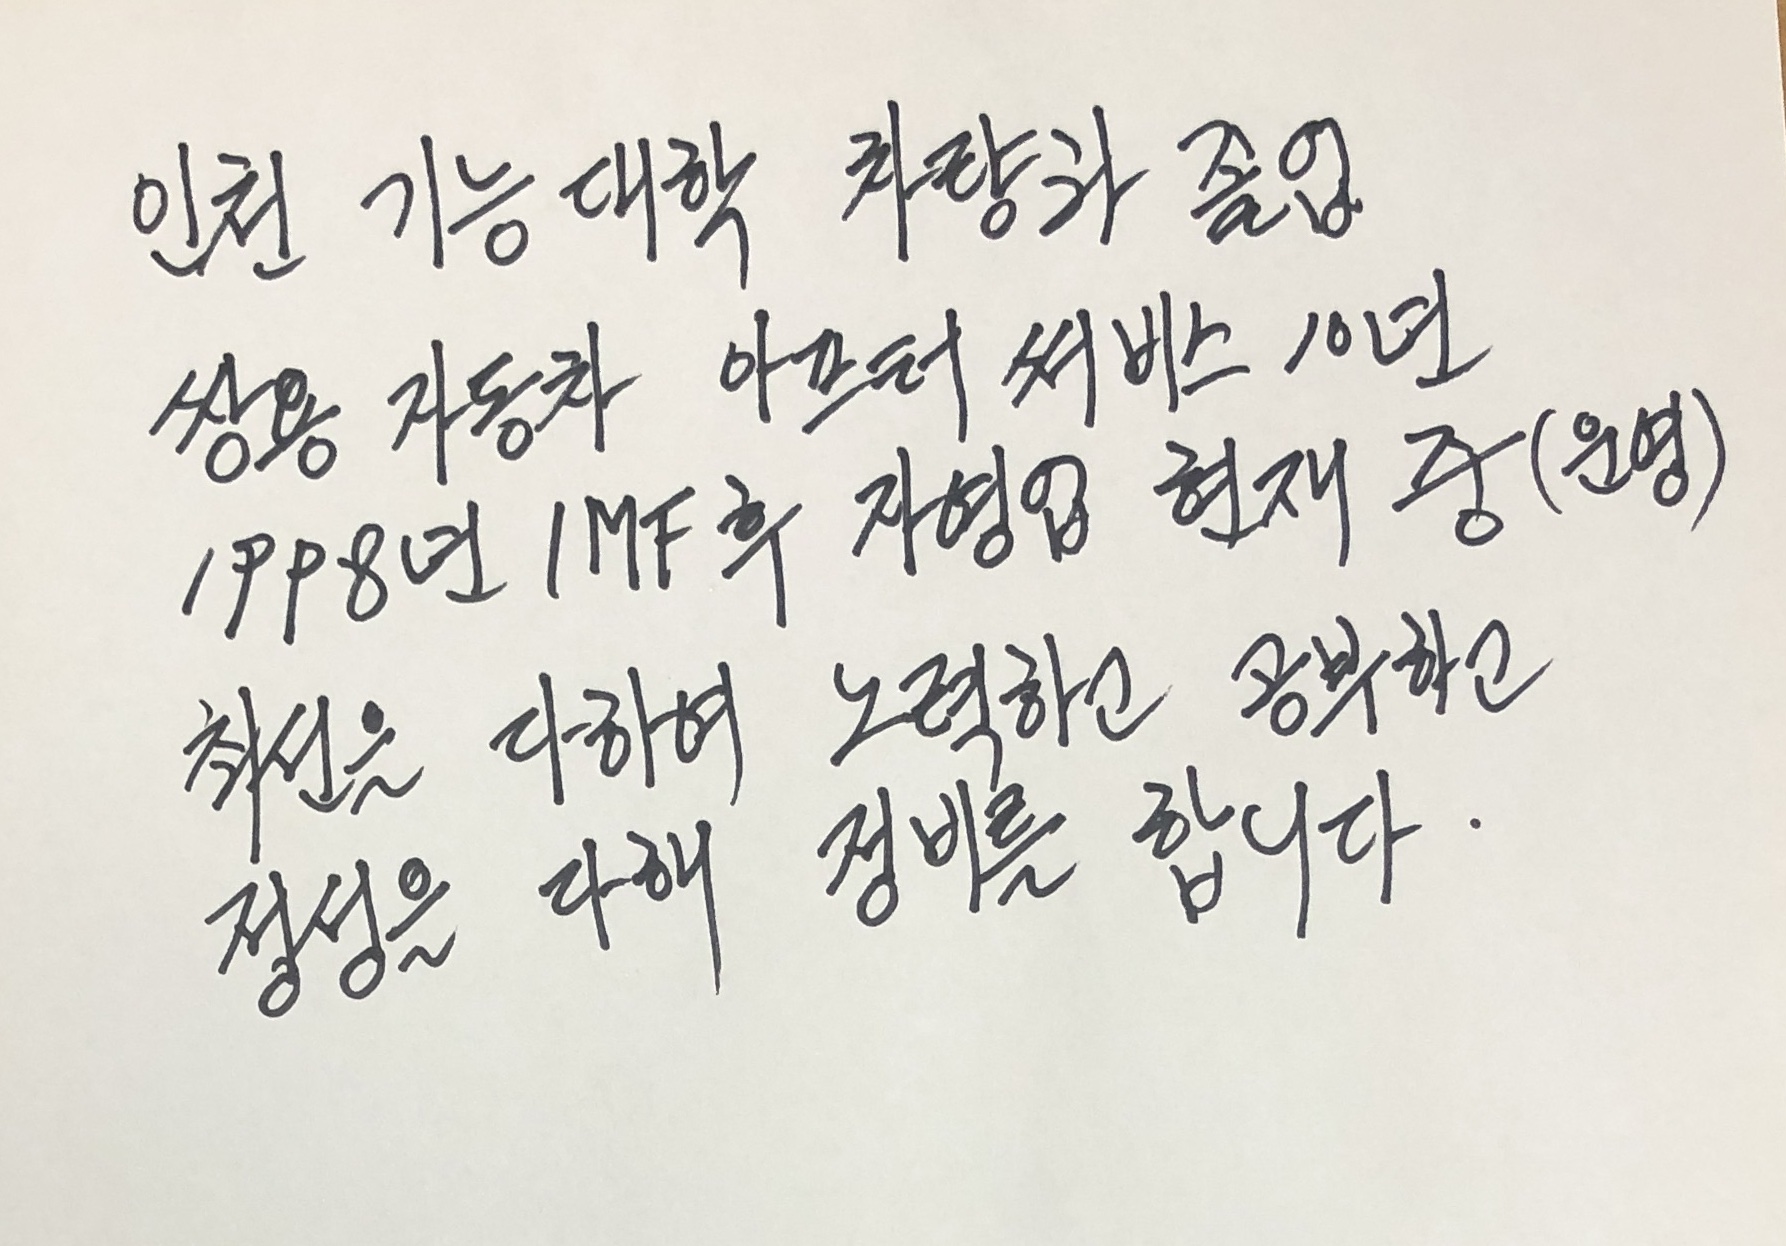 인천 기능대학 차량과 졸업
쌍용 자동차 아프터 써비스 10년
1998년 IMF후 자영업 현재 중(운영)
최선을 다하여 노력하고 공부하고
정성을 다해 정비를 합니다.